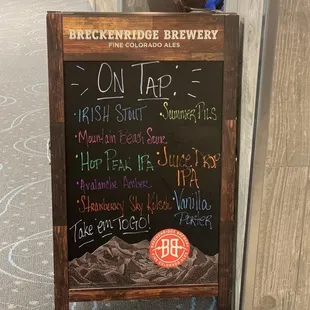 BRECKENRIDGE BREWERY
FINE COLORADO ALES
ON TAP:
·IRISH STOUT
·SUMMER PILS
·Mountain Beach Sour
·HOP PEAK IPA
·JUICE DROP
IPA
·Avalanche Amber
·Strawberry Sky Kolsch
·Vanilla
PORTER
Take em TOGO!
BB
BRECKENRIDGE BREWERY